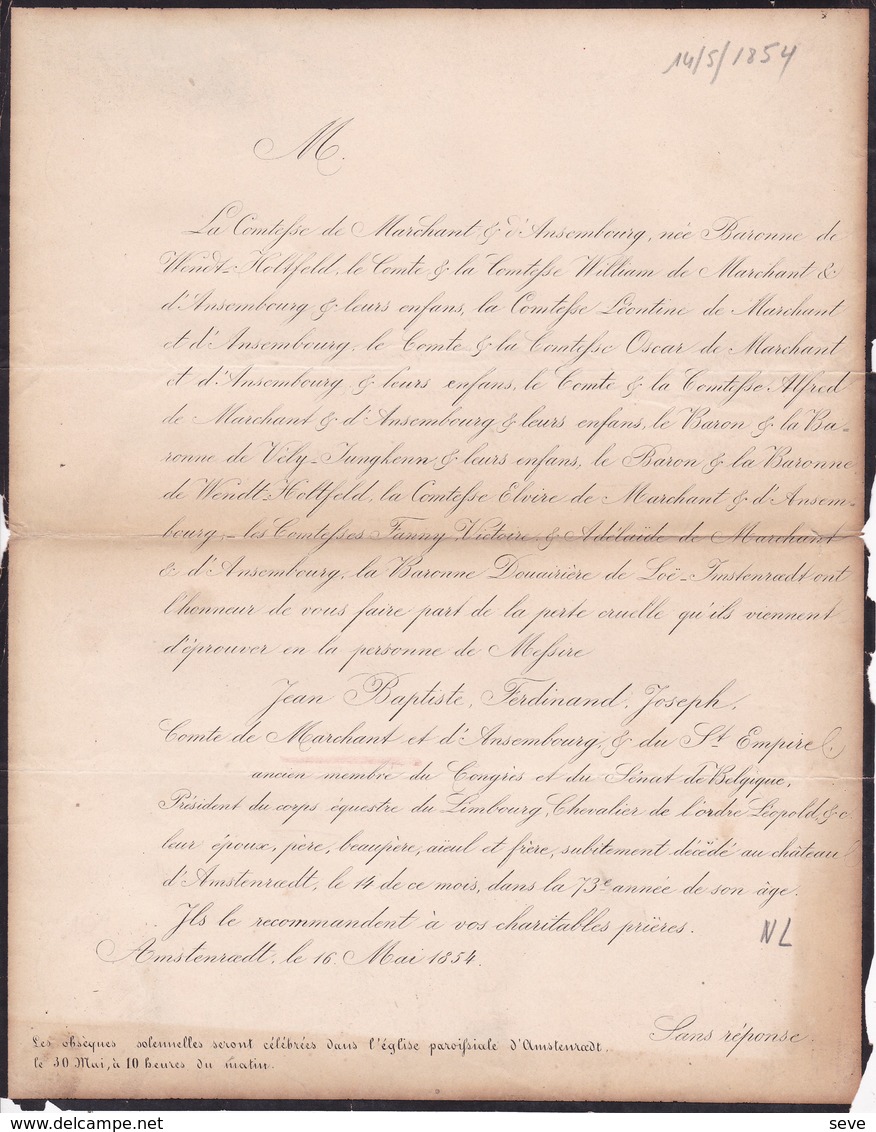 14/5/1854
M.
La Comtesse de Marchant & d'Ansembourg, née Baronne de
Wendt-Holtfeld, le Comte & la Comtesse William de Marchant &
d'Ansembourg & leurs enfans, la Comtesse Léontine de Marchant
et d'Ansembourg, le Comte & la Comtesse Oscar de Marchant
et d'Ansembourg, & leurs enfans, le Comte & la Comtesse Alfred
de Marchant & d'Ansembourg & leurs enfans, le Baron & la Ba-
ronne de Vély-Junghenn & leurs enfans, le Baron & la Baronne
de Wendt-Holtfeld, la Comtesse Elvire de Marchant & d'Ansem-
bourg,- les Comtesses Fanny, Victoire, & Adélaïde de Marchant
& d'Ansembourg, la Baronne Douairière de Loë-Imstenrædt ont
l'honneur de vous faire part de la perte cruelle qu'ils viennent
d'éprouver en la personne de Messire
Jean Baptiste, Ferdinand, Joseph,
Comte de Marchant et d'Ansembourg, & du St Empire,
ancien membre du Congrès et du Sénat de Belgique,
Président du corps équestre du Limbourg, Chevalier de l'ordre Léopold, &c
leur époux, père, beaupère, aïeul et frère, subitement décédé au château
d'Amstenrædt, le 14 de ce mois, dans la 73e année de son âge.
Ils le recommandent à vos charitables prières.
NL
Amstenrædt, le 16 Mai 1854.
Sans réponse.
Les obsèques solennelles seront célébrées dans l'église paroissiale d'Amstenrædt.
le 30 Mai, à 10 heures du matin.
©delcampe.net
seve